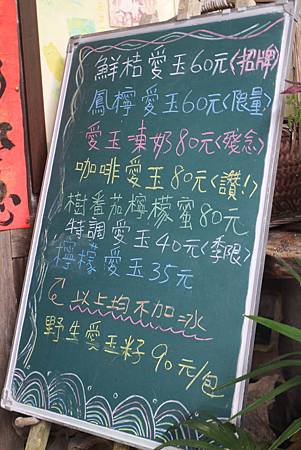 鮮桔愛玉60元<招牌>
鳳檸愛玉60元<限量>
愛玉凍奶80元<殘念>
咖啡愛玉80元<讚!>
樹番茄檸檬蜜80元
特調愛玉40元<季限>
檸檬愛玉35元
以上均不加冰
野生愛玉籽90元/包